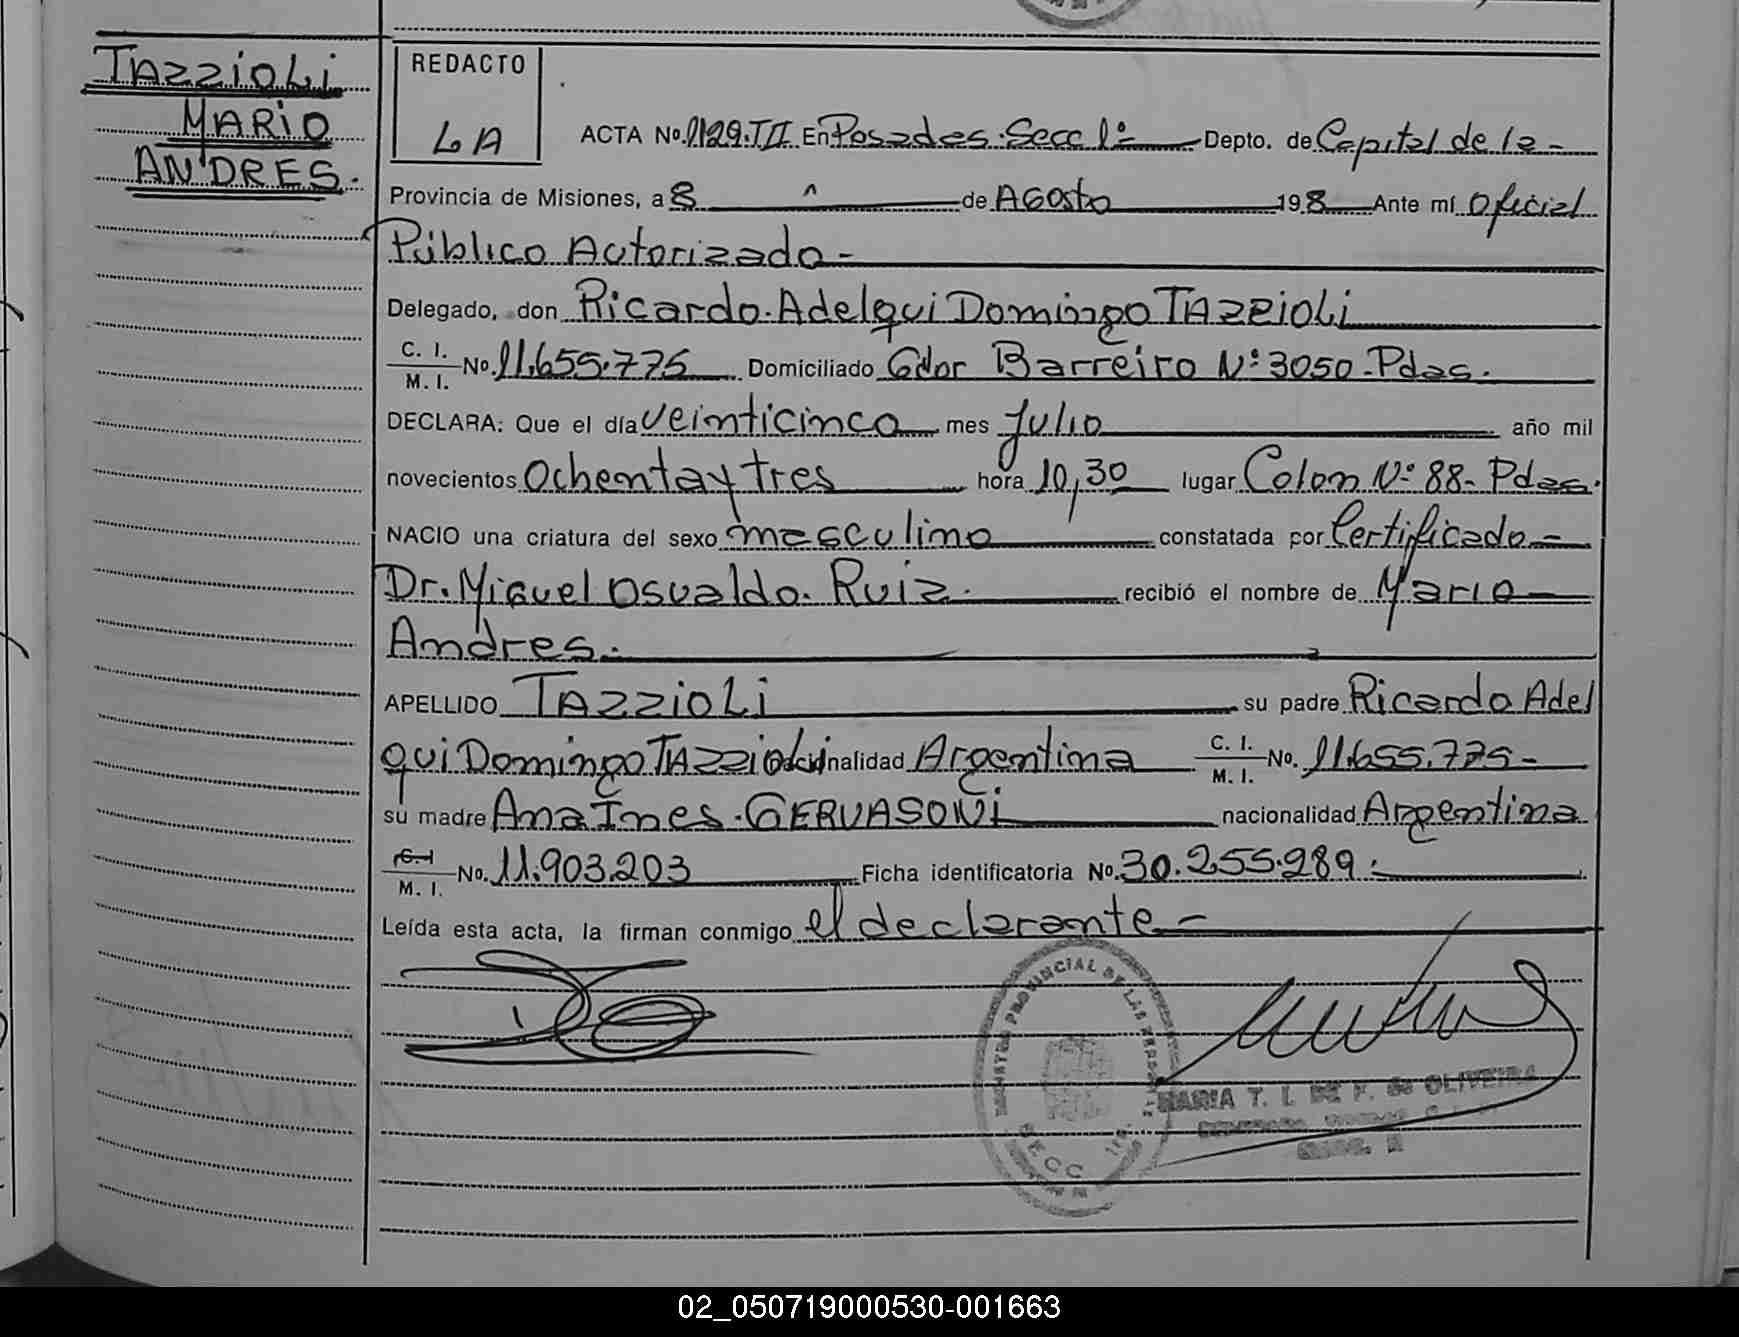 TAZZIOLI
MARIO
ANDRES.
REDACTO
LA
ACTA No. 1129.TII. En Posadas. Secc 1ª Depto. de Capital de la -
Provincia de Misiones, a 8 de Agosto 198 Ante mí Oficial
Público Autorizado -
Delegado, don Ricardo. Adelqui Domingo TAZZIOLI
C. I.
M. I. No. 11.655.775 Domiciliado Gdor Barreiro Nº 3050 - Pdas.
DECLARA: Que el día veinticinco mes Julio año mil
novecientos Ochenta y tres hora 10,30 lugar Colon Nº 88- Pdas.
NACIO una criatura del sexo masculino constatada por Certificado -
Dr. Miguel Osvaldo. Ruiz. recibió el nombre de Mario
Andres.
APELLIDO TAZZIOLI su padre Ricardo Adel
qui Domingo TAZZIOLI nacionalidad Argentina C. I. M. I. No. 11.655.775 -
su madre Ana Ines. GERVASONI nacionalidad Argentina
C. I.
M. I. No. 11.903.203 Ficha identificatoria No. 30.255.289.
Leída esta acta, la firman conmigo el declarante -
REGISTRO PROVINCIAL DE LAS PERSONAS
SECC. 1ra.
MARIA T. I. DE F. de OLIVEIRA
02_050719000530-001663